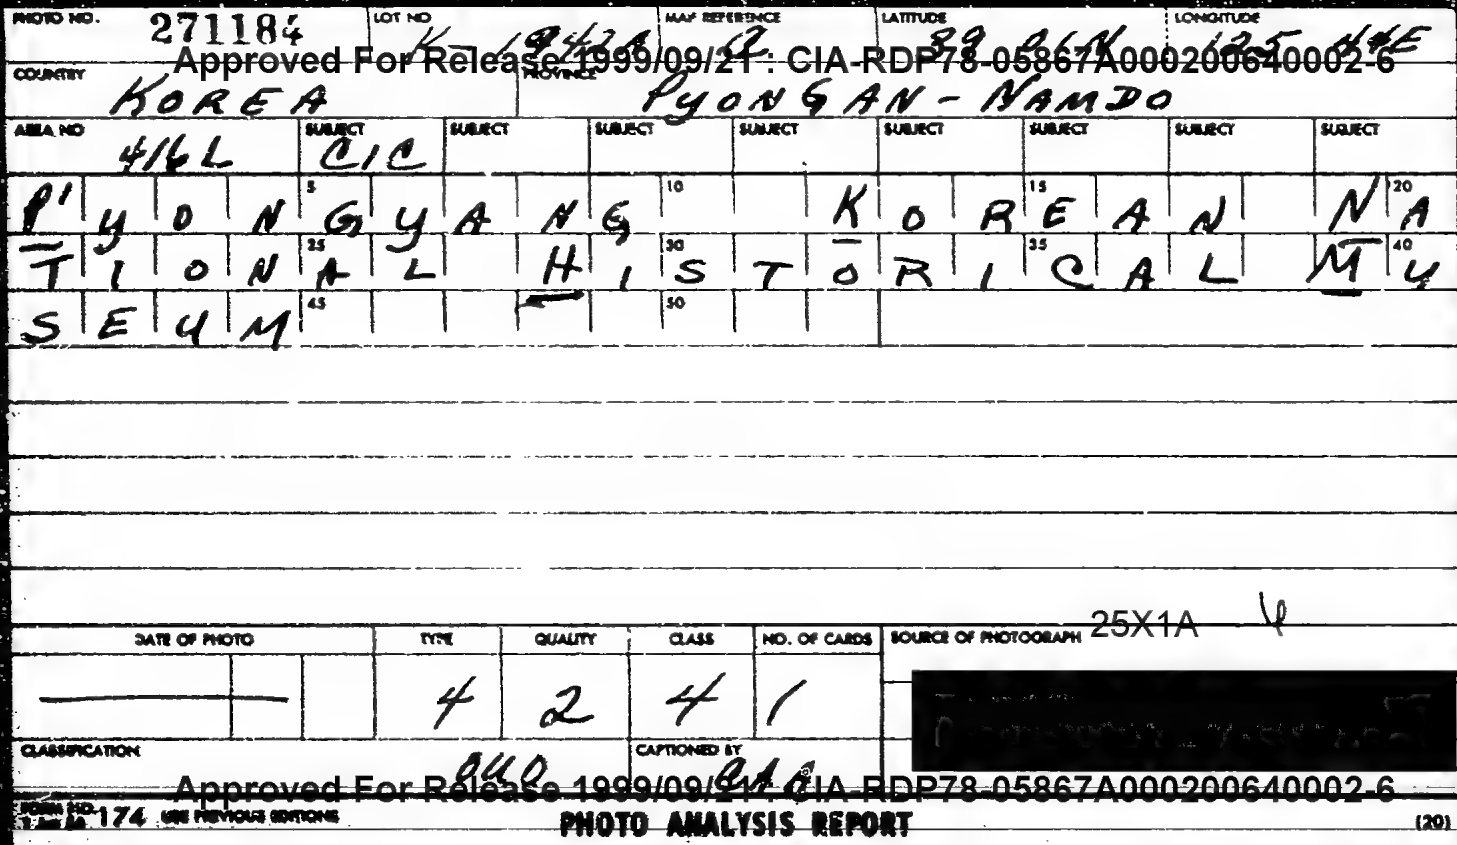 PHOTO NO. 271184 LOT NO MAP REFERENCE 12 LATITUDE 39 01N LONGITUDE 125 44E
Approved For Release 1999/09/21 : CIA-RDP78-05867A000200640002-6
COUNTRY KOREA PROVINCE PYONGAN-NAMDO
AREA NO 416L SUBJECT CIC SUBJECT SUBJECT SUBJECT SUBJECT SUBJECT SUBJECT SUBJECT
5 10 15 20
P'YONGYANG KOREAN NA
25 30 35 40
TIONAL HISTORICAL MU
45 50
SEUM
25X1A
DATE OF PHOTO TYPE QUALITY CLASS NO. OF CARDS SOURCE OF PHOTOGRAPH
4 2 4 1
CLASSIFICATION OUO CAPTIONED BY
Approved For Release 1999/09/21 : CIA-RDP78-05867A000200640002-6
FORM NO. 174 USE PREVIOUS EDITIONS PHOTO ANALYSIS REPORT (20)